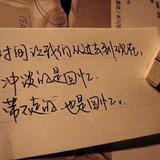 时间让我们从过去到现在,
冲淡的是回忆.
带不走的 也是回忆.